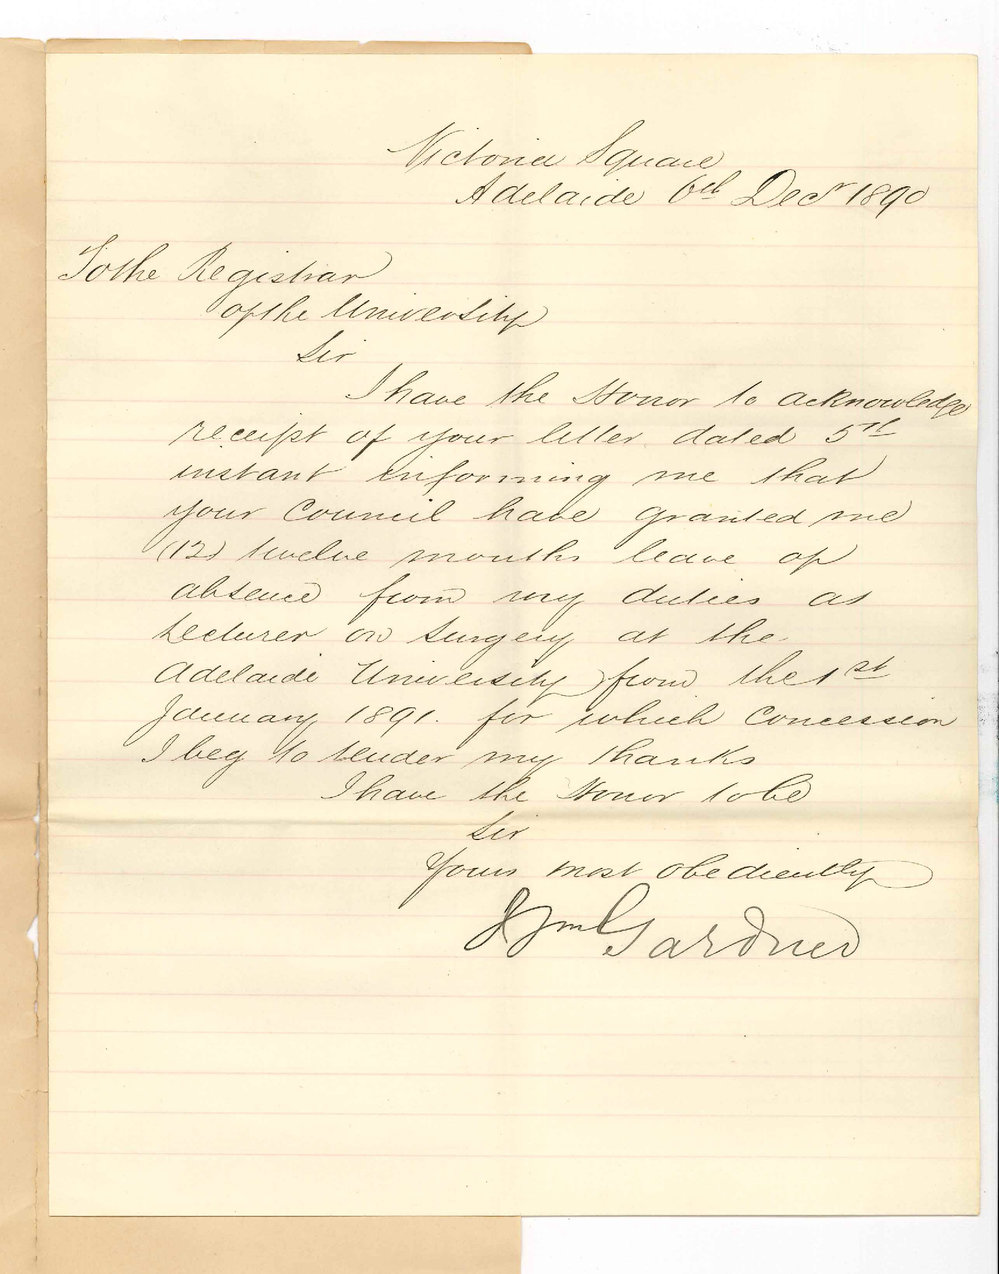 Victoria Square
Adelaide 6th Decr 1890
To the Registrar
of the University
Sir
I have the Honor to acknowledge
receipt of your letter dated 5th
instant informing me that
your Council have granted me
(12) twelve months leave of
absence from my duties as
Lecturer on Surgery at the
Adelaide University from the 1st
January 1891. for which concession
I beg to tender my thanks
I have the Honor to be
Sir
Yours most obediently
Wm Gardner